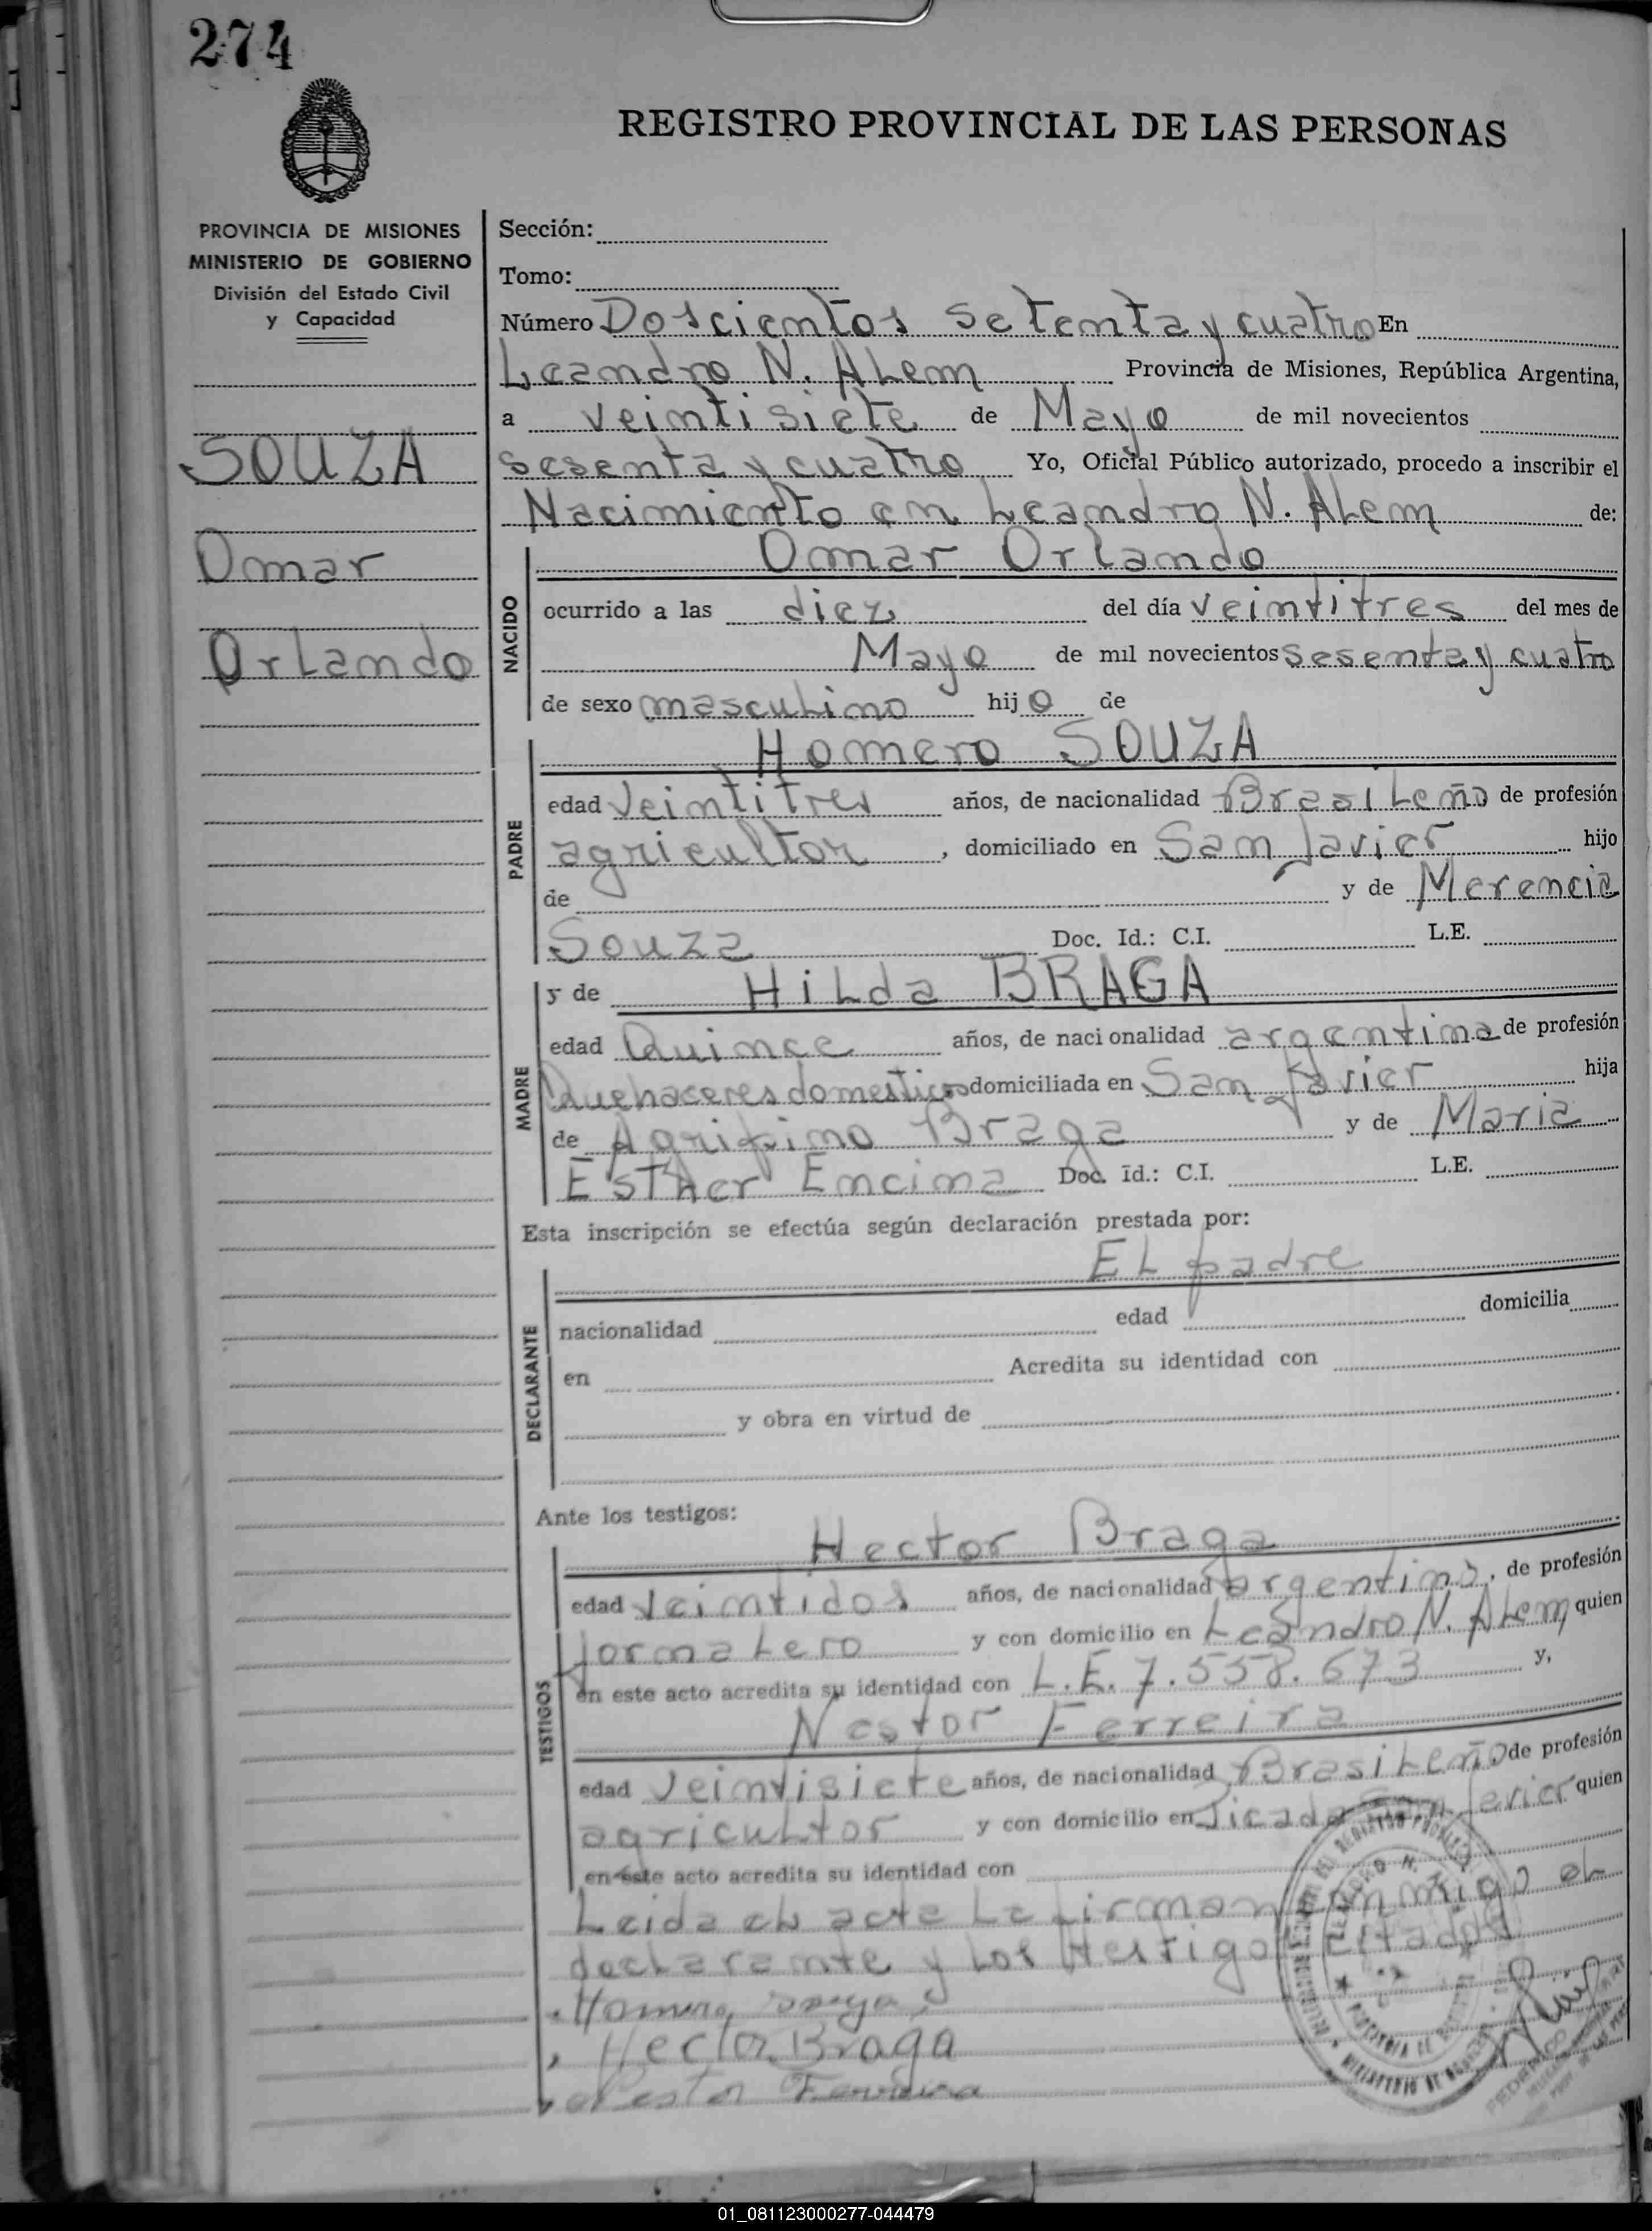 274
REGISTRO PROVINCIAL DE LAS PERSONAS
PROVINCIA DE MISIONES
MINISTERIO DE GOBIERNO
División del Estado Civil
y Capacidad
SOUZA
Omar
Orlando
Sección:
Tomo:
Número Doscientos setenta y cuatro En
Leandro N. Alem Provincia de Misiones, República Argentina,
a veintisiete de Mayo de mil novecientos
sesenta y cuatro Yo, Oficial Público autorizado, procedo a inscribir el
Nacimiento en Leandro N. Alem de:
NACIDO
Omar Orlando
ocurrido a las diez del día veintitres del mes de
Mayo de mil novecientos sesenta y cuatro
de sexo masculino hijo de
PADRE
Homero SOUZA
edad Veintitres años, de nacionalidad Brasileño de profesión
agricultor, domiciliado en San Javier hijo
de y de Merencia
Souza Doc. Id.: C.I. L.E.
MADRE
y de Hilda BRAGA
edad Quince años, de nacionalidad argentina de profesión
Quehaceres domesticos domiciliada en San Javier hija
de Agripino Braga y de Maria
Esther Encina Doc. Id.: C.I. L.E.
Esta inscripción se efectúa según declaración prestada por:
DECLARANTE
El padre
nacionalidad edad domicilia
en Acredita su identidad con
y obra en virtud de
Ante los testigos:
TESTIGOS
Hector Braga
edad Veintidos años, de nacionalidad argentino, de profesión
jornalero y con domicilio en Leandro N. Alem quien
en este acto acredita su identidad con L.E. 7.558.673 y,
Nestor Ferreira
edad Veintisiete años, de nacionalidad Brasileño de profesión
agricultor y con domicilio en Picada San Javier quien
en este acto acredita su identidad con
Leida el acta la firman conmigo el
declarante y los testigos citados
Homero
Hector Braga
Nestor Ferreira
01_081123000277-044479